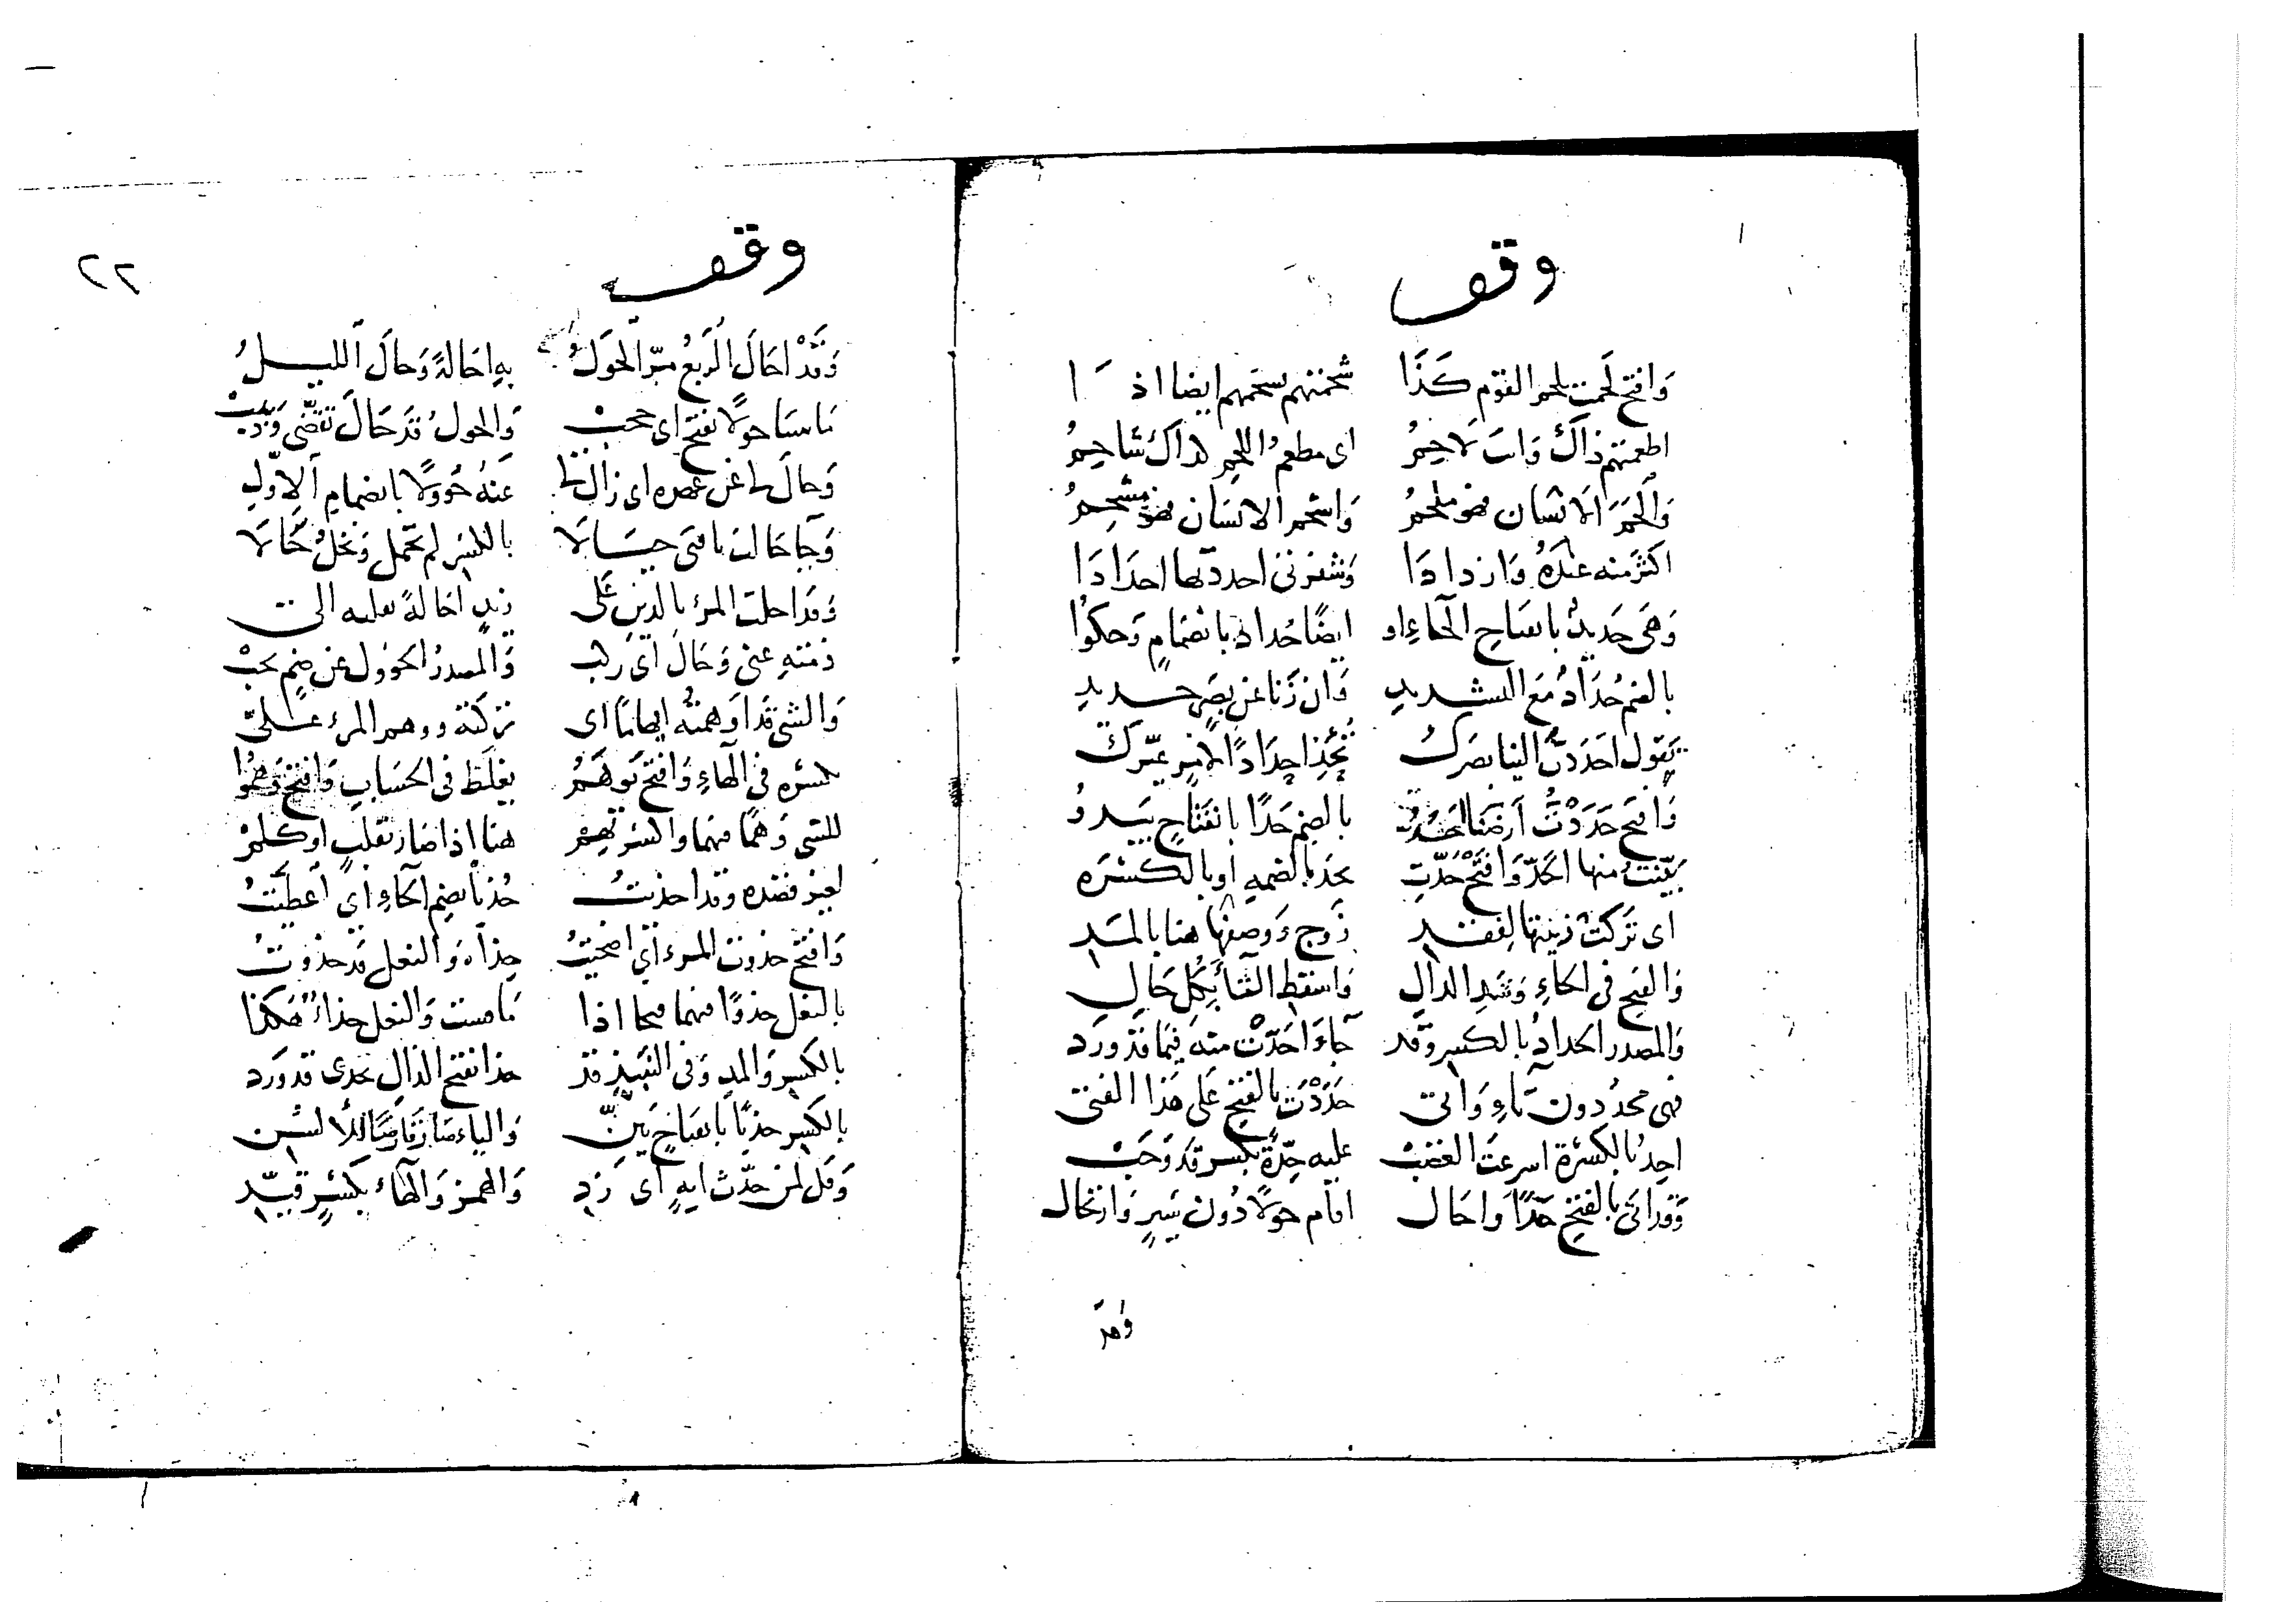 وقف
وَافتح لَحمت بلحم القوم كَذَا شحمتهم بشحمهم ايضا اذَا
اطعمتهم ذاكَ وَانت لاحِمُ اى مطعمُ اللحم كذاك شاحِمُ
وَالحمَ الانسان فهو ملحمُ وَاشحم الانسَان فهو مشحِمُ
اكثرَ منه عندَهُ وَازدادَا وَشفرتى احددتها احدَادَا
وَهىَ حَديدٌ بانفتاحِ الحَاءِ او ايضًا حُداد بانضمامٍ وَحكوْا
بالضم حُدّادٌ مَعَ التشديدِ وَان رَنا عن بصَرٍ حديدِ
يَقول احَددتُ الينا بصَركْ تُحِدُّ احِدَادًا لامرٍ غيّركْ
وَافتح حَدَدْتُ اَرضنَا احدُّ بالضم حَدًّا بانفتَاحٍ يَبدو
بَيّنتُ منها الحَدّ وَافتَحْ حَدّتِ تحد بالضمه او بالكسْرَه
اى تَركتْ زينتها لفقدِ زَوج وَوصفها هنا بالمَد
وَالفتح فى الحَاءِ وَشدِ الدالِ وَاسقط التَّا بِكُلِ حَالِ
وَالمصدر الحدادُ بالكسرِ وَقَد جَاءَ احَدّتْ منهَ فيمَا قدْ وَرَد
فهى محدّ دون تاءٍ وَاتى حَدَدْتَ بالفتح عَلى هَذا الفتى
احِدُّ بالكسْرَة اسرعتَ الغضبْ عليه حِدّةً بكسرٍ قد وَجَبْ
وَقد اتى بالفتحِ حَدًّا وَاحَال اقام حَولًا دُون سَيرٍ وَارتحال
وَقَد
وقف
٢٢
وَقَدْ احَالَ الرَبعُ مرّ الحَولُ بهِ احَالةً وَحالَ الليلُ
مَا مسَا حولًا بفتح اى حجبْ وَالحولُ قَد حَالَ تقضّى وَذهبْ
وَحالَ لى عن عهده اى زَال لى عَنهُ حُؤولًا بانضمامِ الاوّلِ
وَجَا حَالت يا فتى حيَالَا بالكسر لم تحمل وَنخلٌ حَالَا
وَقد احلت المرء بالدينِ عَلى زيدٍ احَالةً عليه التى
ذمّتهِ عنى وَحَالَ اى ركب وَالمصدرُ الحؤول عن ضمٍ يجبْ
وَالشى قد اَوهمتُه ايهامًا اى تركته ووهم المرءُ عَلىّ
بكسره فى الهاءِ وَافتح يَوهَمُ يغلَط فى الحسَابِ وَافتح وَهمُوا
للشى وَهمًا منهما وَاكسر تهمْ هنا اذا ضارَ بقلبٍ او كلمْ
لغير قصده وقد احذيتُ حُذيا بضم الحَاءِ اى اعطيتُ
وَافتح حذوت المرءَ اى اضحيتُ حِذاه وَالنعل قد حَذوتُ
بالنعل حَذوًا منهما معا اذا مَا مست وَالنعل حذاءٌ هَكذا
بالكسر وَالمد وَفى النبيذ قد حذا بفتح الذال يحذى قد وَرَد
بالكسر حذيًا بانفتاحٍ بَيّنِ وَالياء صَارَ قَارصًا للالسُن
وَقل لمن حدّث ايهٍ اى زدِ وَالهمز وَالهاء بكسْرٍ قيّد